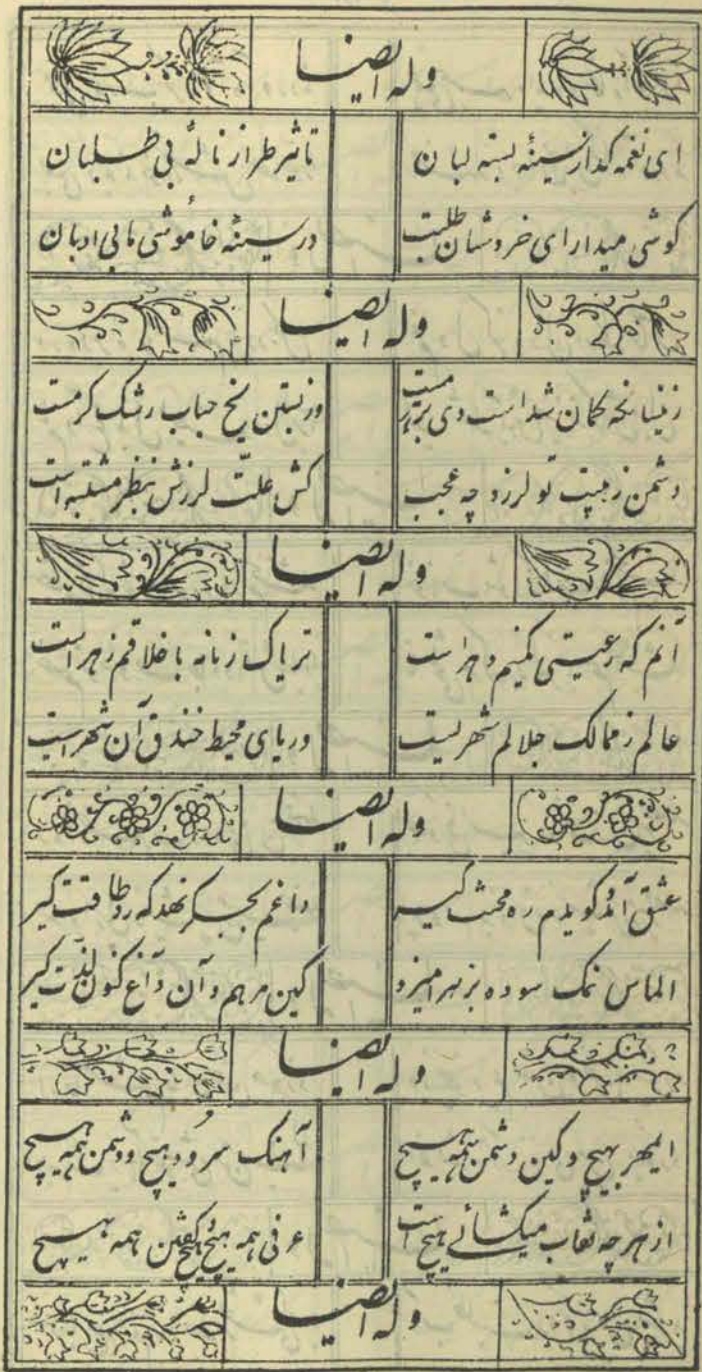 وله ایضا
ای نغمه گداز سینهٔ بسته لبان تاثیر طراز نالهٔ بی طلبان
گوشی میدار ای خروشان طلبت در سینهٔ خاموشی ما بی ادبان
وله ایضا
زینسانکه کمان شد است وز بستن یخ حباب رشک گرمست
دشمن ز هیبت تو لرزد چه عجب کش علت لرزش بنظر مشتبه است
وله ایضا
آنم که رعیتی کمینم دهر است تریاک زمانه با خلاقم زهر است
عالم ز ممالک جلالم شهریست دریای محیط خندق آن شهر است
وله ایضا
عشق آمد گویدم ره محنت گیر داغم بجگر نهد که رو طاقت گیر
الماس نمک سوده بزهر آمیزد کین مرهم و آن داغ کنون لذت گیر
وله ایضا
ای مهر بهیچ و کین دشمن همه هیچ آهنک سرود هیچ و همه هیچ
از هر چه نقاب میکشائی هیچ است عرفی همه هیچ همه هیچ
وله ایضا